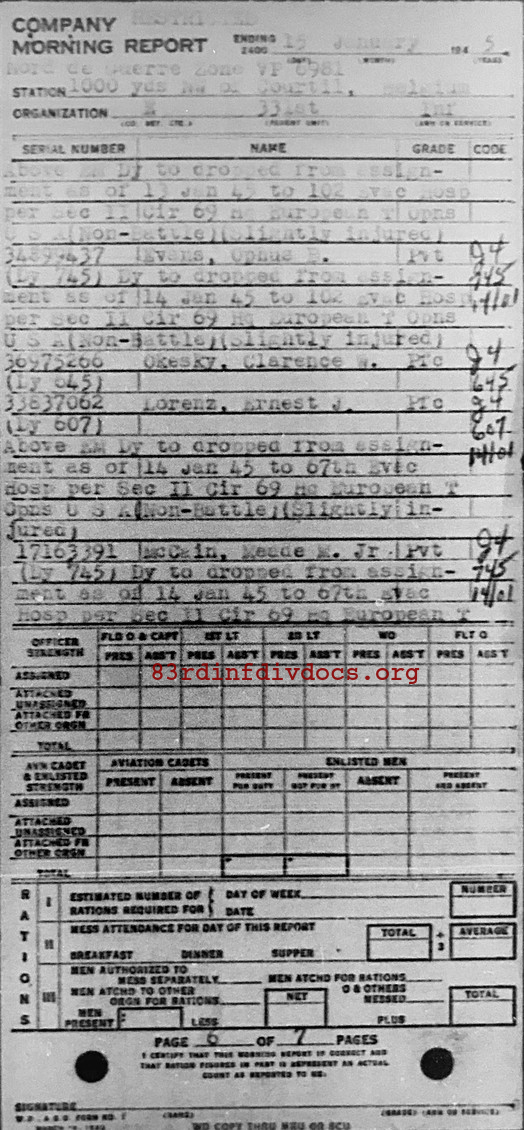 RESTRICTED
COMPANY
MORNING REPORT ENDING 2400 15 January 194 5
(DAY) (MONTH) (YEAR)
Nord de Guerre Zone VP 6981
STATION 1000 yds NW of Courtil, Belgium
ORGANIZATION K 331st Inf
(CO. DET. ETC.) (PARENT UNIT) (ARM OR SERVICE)
SERIAL NUMBER NAME GRADE CODE
Above EM Dy to dropped from assign-
ment as of 13 Jan 45 to 102 Evac Hosp
per Sec II Cir 69 Hq European T Opns
U S A (Non-Battle)(Slightly injured)
34899437 Evans, Ophus B. Pvt g4
(Dy 745) Dy to dropped from assign- 745
ment as of 14 Jan 45 to 102 Evac Hosp 14/01
per Sec II Cir 69 Hq European T Opns
U S A (Non-Battle)(Slightly injured)
36975266 Okesky, Clarence W. Pfc g4
(Dy 645) 645
33837062 Lorenz, Ernest J. Pfc g4
(Dy 607) 607
Above EM Dy to dropped from assign- 14/01
ment as of 14 Jan 45 to 67th Evac
Hosp per Sec II Cir 69 Hq European T
Opns U S A (Non-Battle)(Slightly in-
jured)
17163391 McCain, Meade M. Jr Pvt g4
(Dy 745) Dy to dropped from assign- 745
ment as of 14 Jan 45 to 67th Evac 14/01
Hosp per Sec II Cir 69 Hq European T
OFFICER STRENGTH FLD O & CAPT 1ST LT 2D LT WO FLT O
PRES ABS'T PRES ABS'T PRES ABS'T PRES ABS'T PRES ABS'T
ASSIGNED
83rdinfdivdocs.org
ATTACHED UNASSIGNED
ATTACHED FR OTHER ORGN
TOTAL
AVN CADET & ENLISTED STRENGTH AVIATION CADETS ENLISTED MEN
PRESENT ABSENT PRESENT FOR DUTY PRESENT NOT FOR DY ABSENT PRESENT AND ABSENT
ASSIGNED
ATTACHED UNASSIGNED
ATTACHED FR OTHER ORGN
TOTAL
RATIONS
I ESTIMATED NUMBER OF RATIONS REQUIRED FOR DAY OF WEEK DATE NUMBER
II MESS ATTENDANCE FOR DAY OF THIS REPORT TOTAL ÷ 3 AVERAGE
BREAKFAST DINNER SUPPER
III MEN AUTHORIZED TO MESS SEPARATELY MEN ATCHD FOR RATIONS
MEN ATCHD TO OTHER ORGN FOR RATIONS NET O & OTHERS MESSED TOTAL
MEN PRESENT LESS PLUS
PAGE 6 OF 7 PAGES
I CERTIFY THAT THIS MORNING REPORT IS CORRECT AND
THAT RATION FIGURES IN PART III REPRESENT AN ACTUAL
COUNT AS REPORTED TO ME.
SIGNATURE
(NAME) (GRADE) (ARM OR SERVICE)
W.D., A.G.O. FORM NO. 1
WD COPY THRU MRU OR SCU